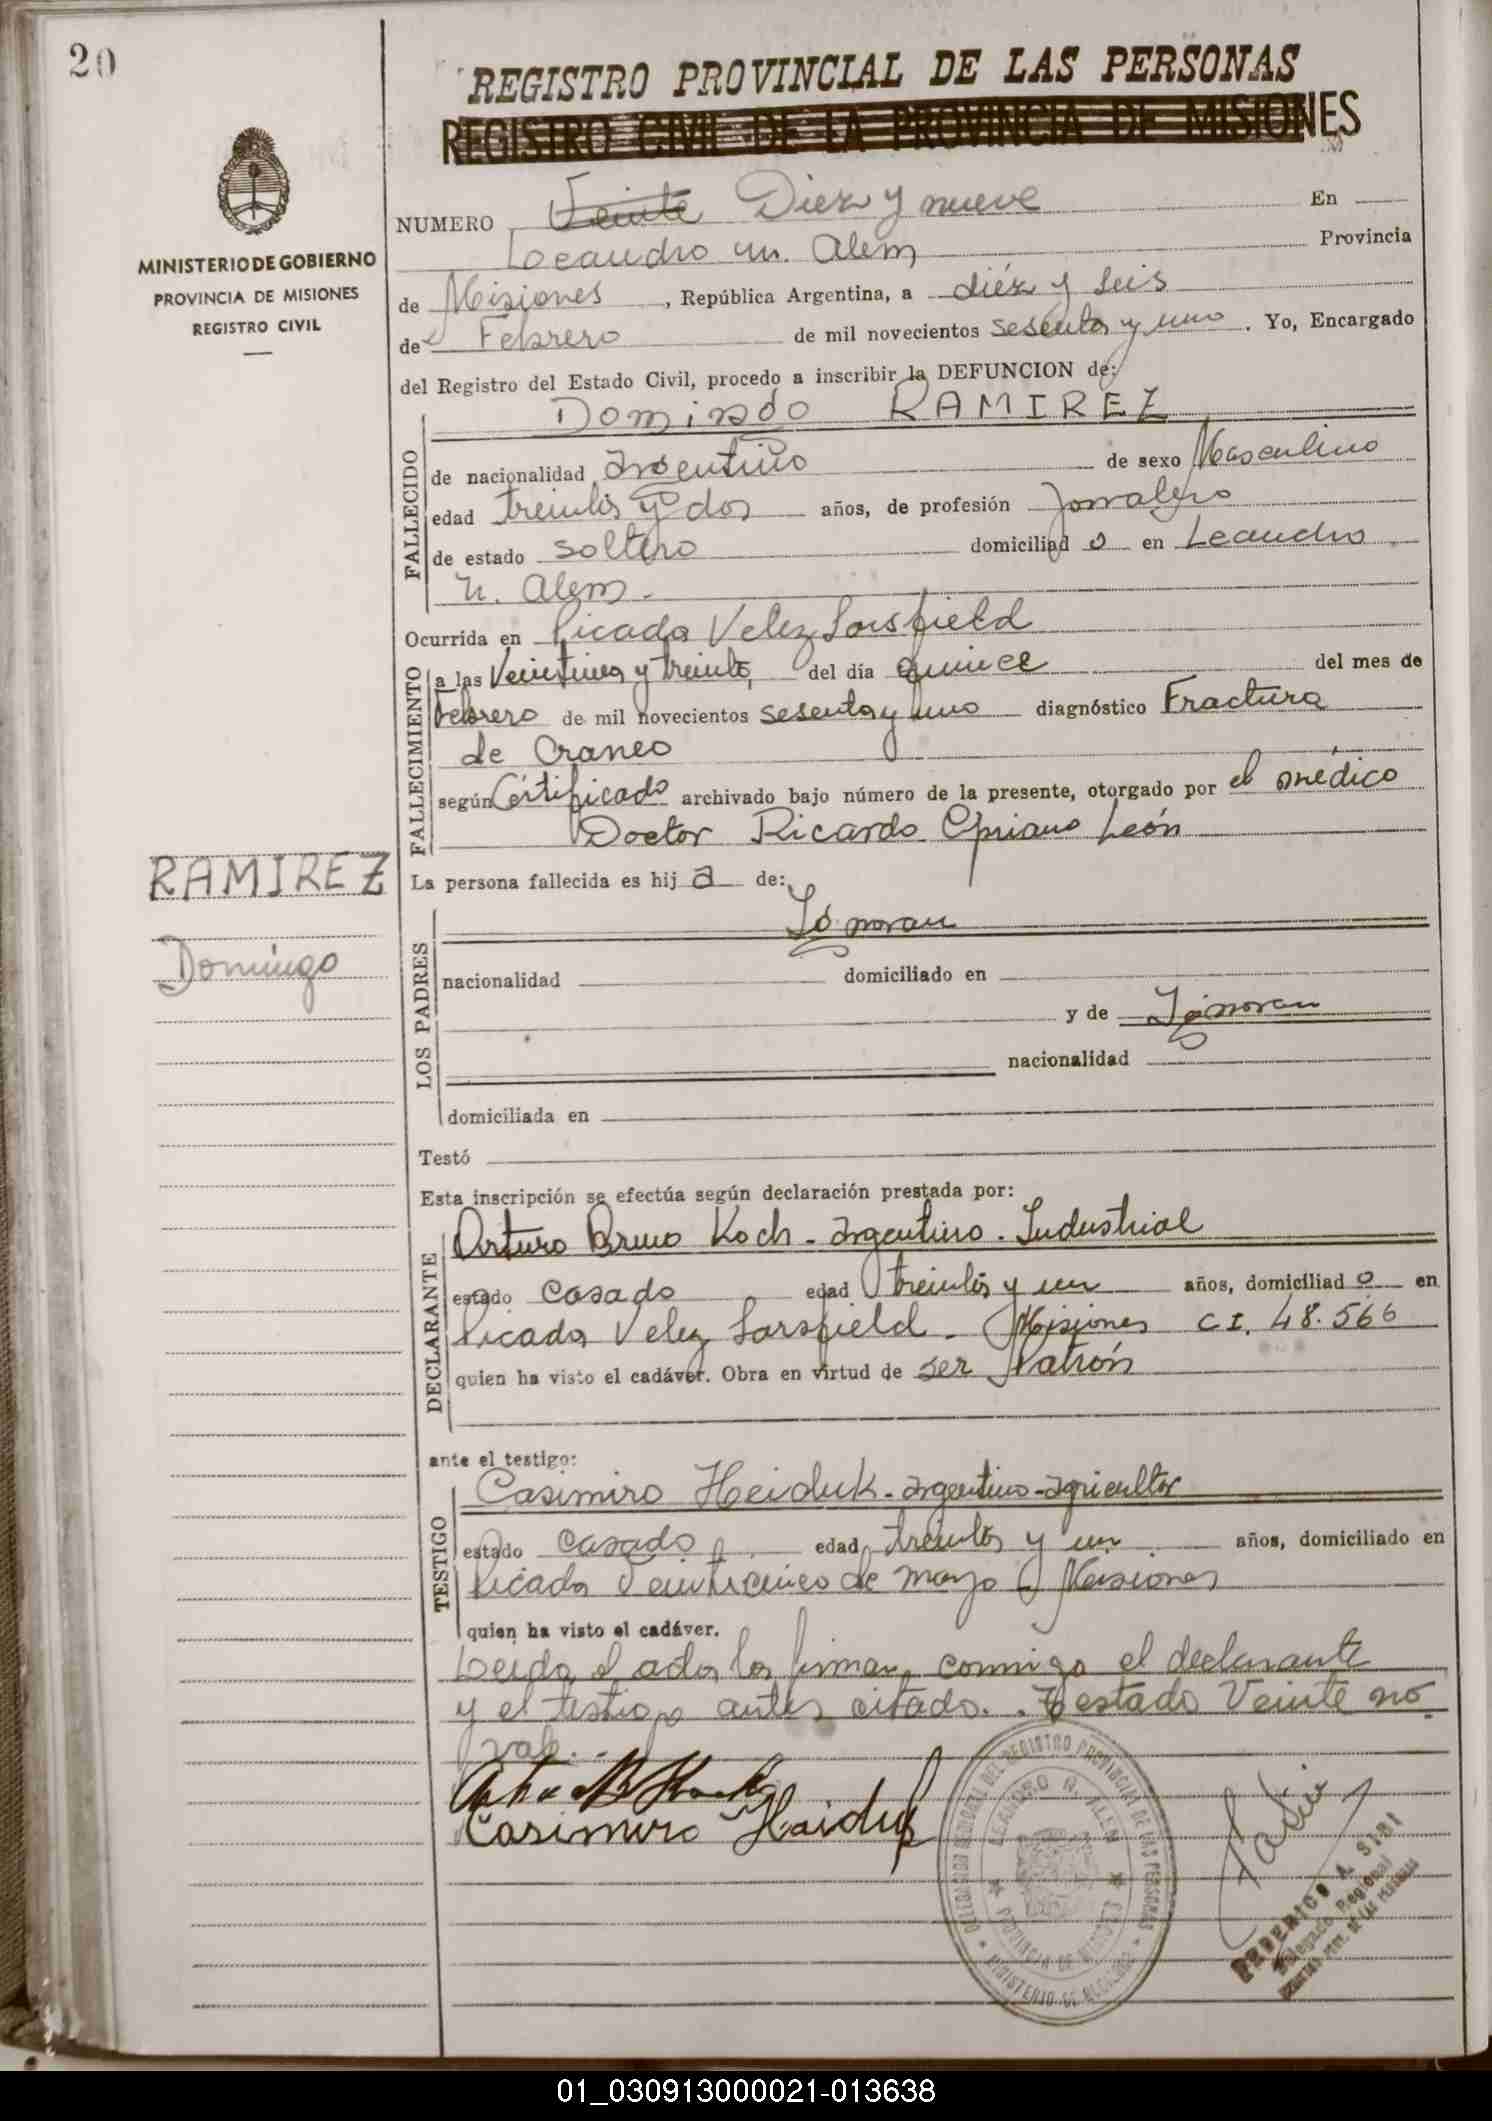 20
REGISTRO PROVINCIAL DE LAS PERSONAS
REGISTRO CIVIL DE LA PROVINCIA DE MISIONES
MINISTERIO DE GOBIERNO
PROVINCIA DE MISIONES
REGISTRO CIVIL
NUMERO Veinte Diez y nueve En
Leandro N. Alem Provincia
de Misiones, República Argentina, a diéz y seis
de Febrero de mil novecientos sesenta y uno. Yo, Encargado
del Registro del Estado Civil, procedo a inscribir la DEFUNCION de:
Domingo RAMIREZ
FALLECIDO
de nacionalidad argentino de sexo Masculino
edad treinta y dos años, de profesión Jornalero
de estado soltero domiciliad o en Leandro
N. Alem.
Ocurrida en Picada Velez Sarsfield
FALLECIMIENTO
a las Veintiuna y treinta, del día quince del mes de
Febrero de mil novecientos sesenta y uno diagnóstico Fractura
de Craneo
según Certificado archivado bajo número de la presente, otorgado por el médico
Doctor Ricardo Cipriano León
RAMIREZ
Domingo
La persona fallecida es hij a de:
LOS PADRES
Ignoran
nacionalidad domiciliado en
y de Ignoran
nacionalidad
domiciliada en
Testó
Esta inscripción se efectúa según declaración prestada por:
DECLARANTE
Arturo Bruno Koch - argentino - Industrial
estado casado edad treinta y un años, domiciliad o en
Picada Velez Sarsfield - Misiones C.I. 48.566
quien ha visto el cadáver. Obra en virtud de ser Patrón
ante el testigo:
TESTIGO
Casimiro Heiduk - argentino - agricultor
estado casado edad treinta y un años, domiciliado en
Picada Veinticinco de mayo Misiones
quien ha visto el cadáver.
Leida el acta la firman conmigo el declarante
y el testigo antes citado. Testado Veinte no
vale.
Casimiro Haiduk
DELEGACION REGIONAL DEL REGISTRO PROVINCIAL DE LAS PERSONAS
LEANDRO N. ALEM
PROVINCIA DE MISIONES
MINISTERIO DE
FEDERICO A. SIBI
Delegado Regional
01_030913000021-013638